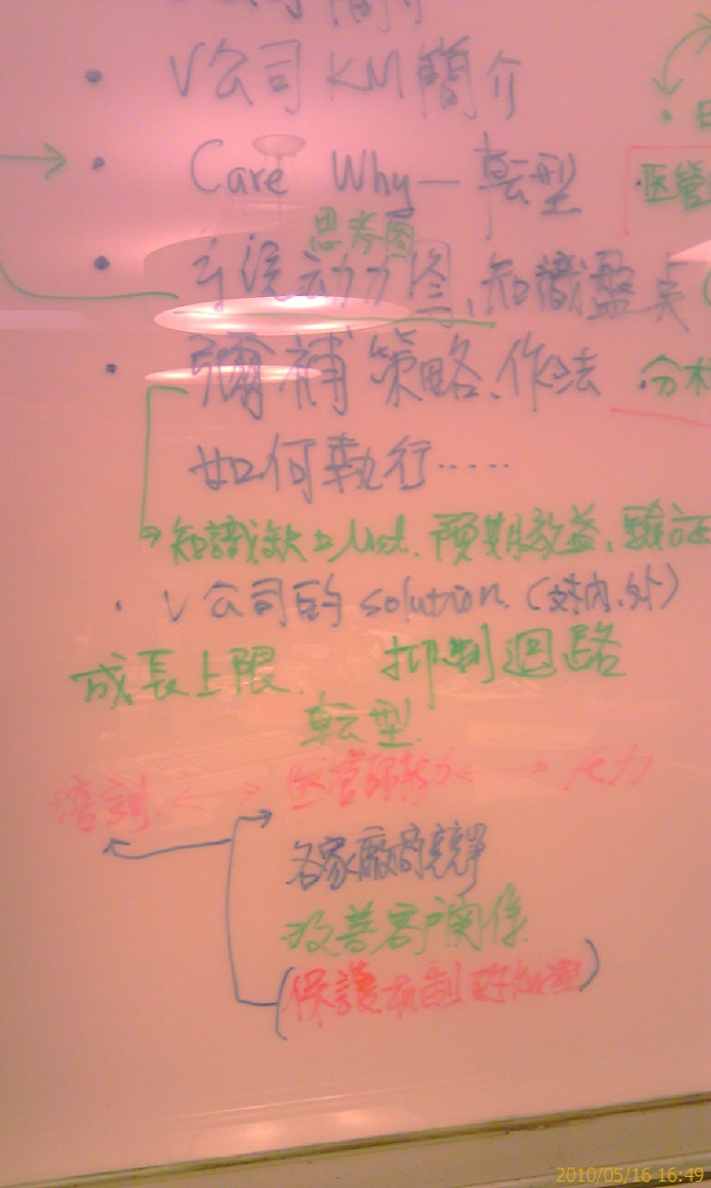 • V公司KM簡介
• Care Why — 転型
思考圖
• 系統動力圖、知識盤点
• 彌補策略、作法
·分析
如何執行……
知識缺口List、預期效益、驗証
• V公司的 solution.(対內、外)
成長上限. 抑制迴路
転型.
培訓 医管師
各家廠商競爭
改善客戶関係
(保護机制
2010/05/16 16:49